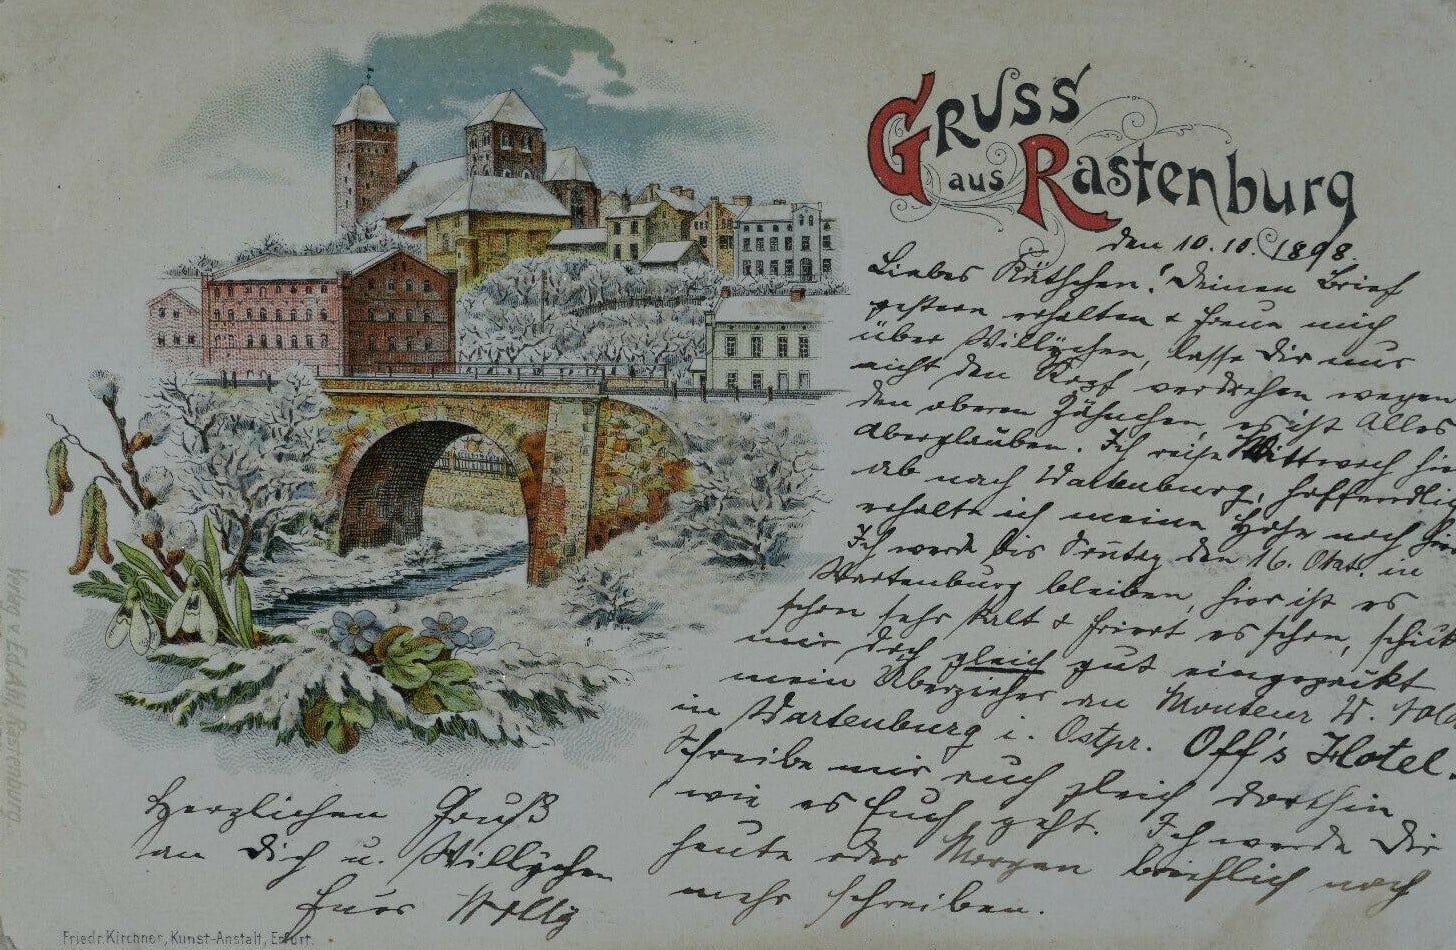 Gruss
aus Rastenburg
den 10.10.1898.
Liebes Käthchen! Deinen Brief
gestern erhalten & freue mich
über Willychen, lasse Dir nur
nicht den Kopf verdrehen wegen
den oberen Zähnchen, es ist Alles
Aberglauben. Ich reise Mittwoch hier
ab nach Wartenburg, hoffendlich
erhalte ich meine noch hier
Ich werde bis den 16. Okt. in
Wartenburg bleiben, hier ist es
schon sehr kalt & friert es schon, schickt
mir doch gleich gut eingepackt
mein Überzieher an Monteur W.
in Wartenburg i. Ostpr. Off's Hotel.
Schreibe mir auch gleich dorthin
wie es Euch geht. Ich werde Dir
heute oder Morgen brieflich noch
mehr schreiben.
Herzlichen Gruß
an Dich u. Willychen
Euer Willy
Friedr. Kirchner, Kunst-Anstalt, Erfurt.
Verlag v. Ed. Ahl, Rastenburg.